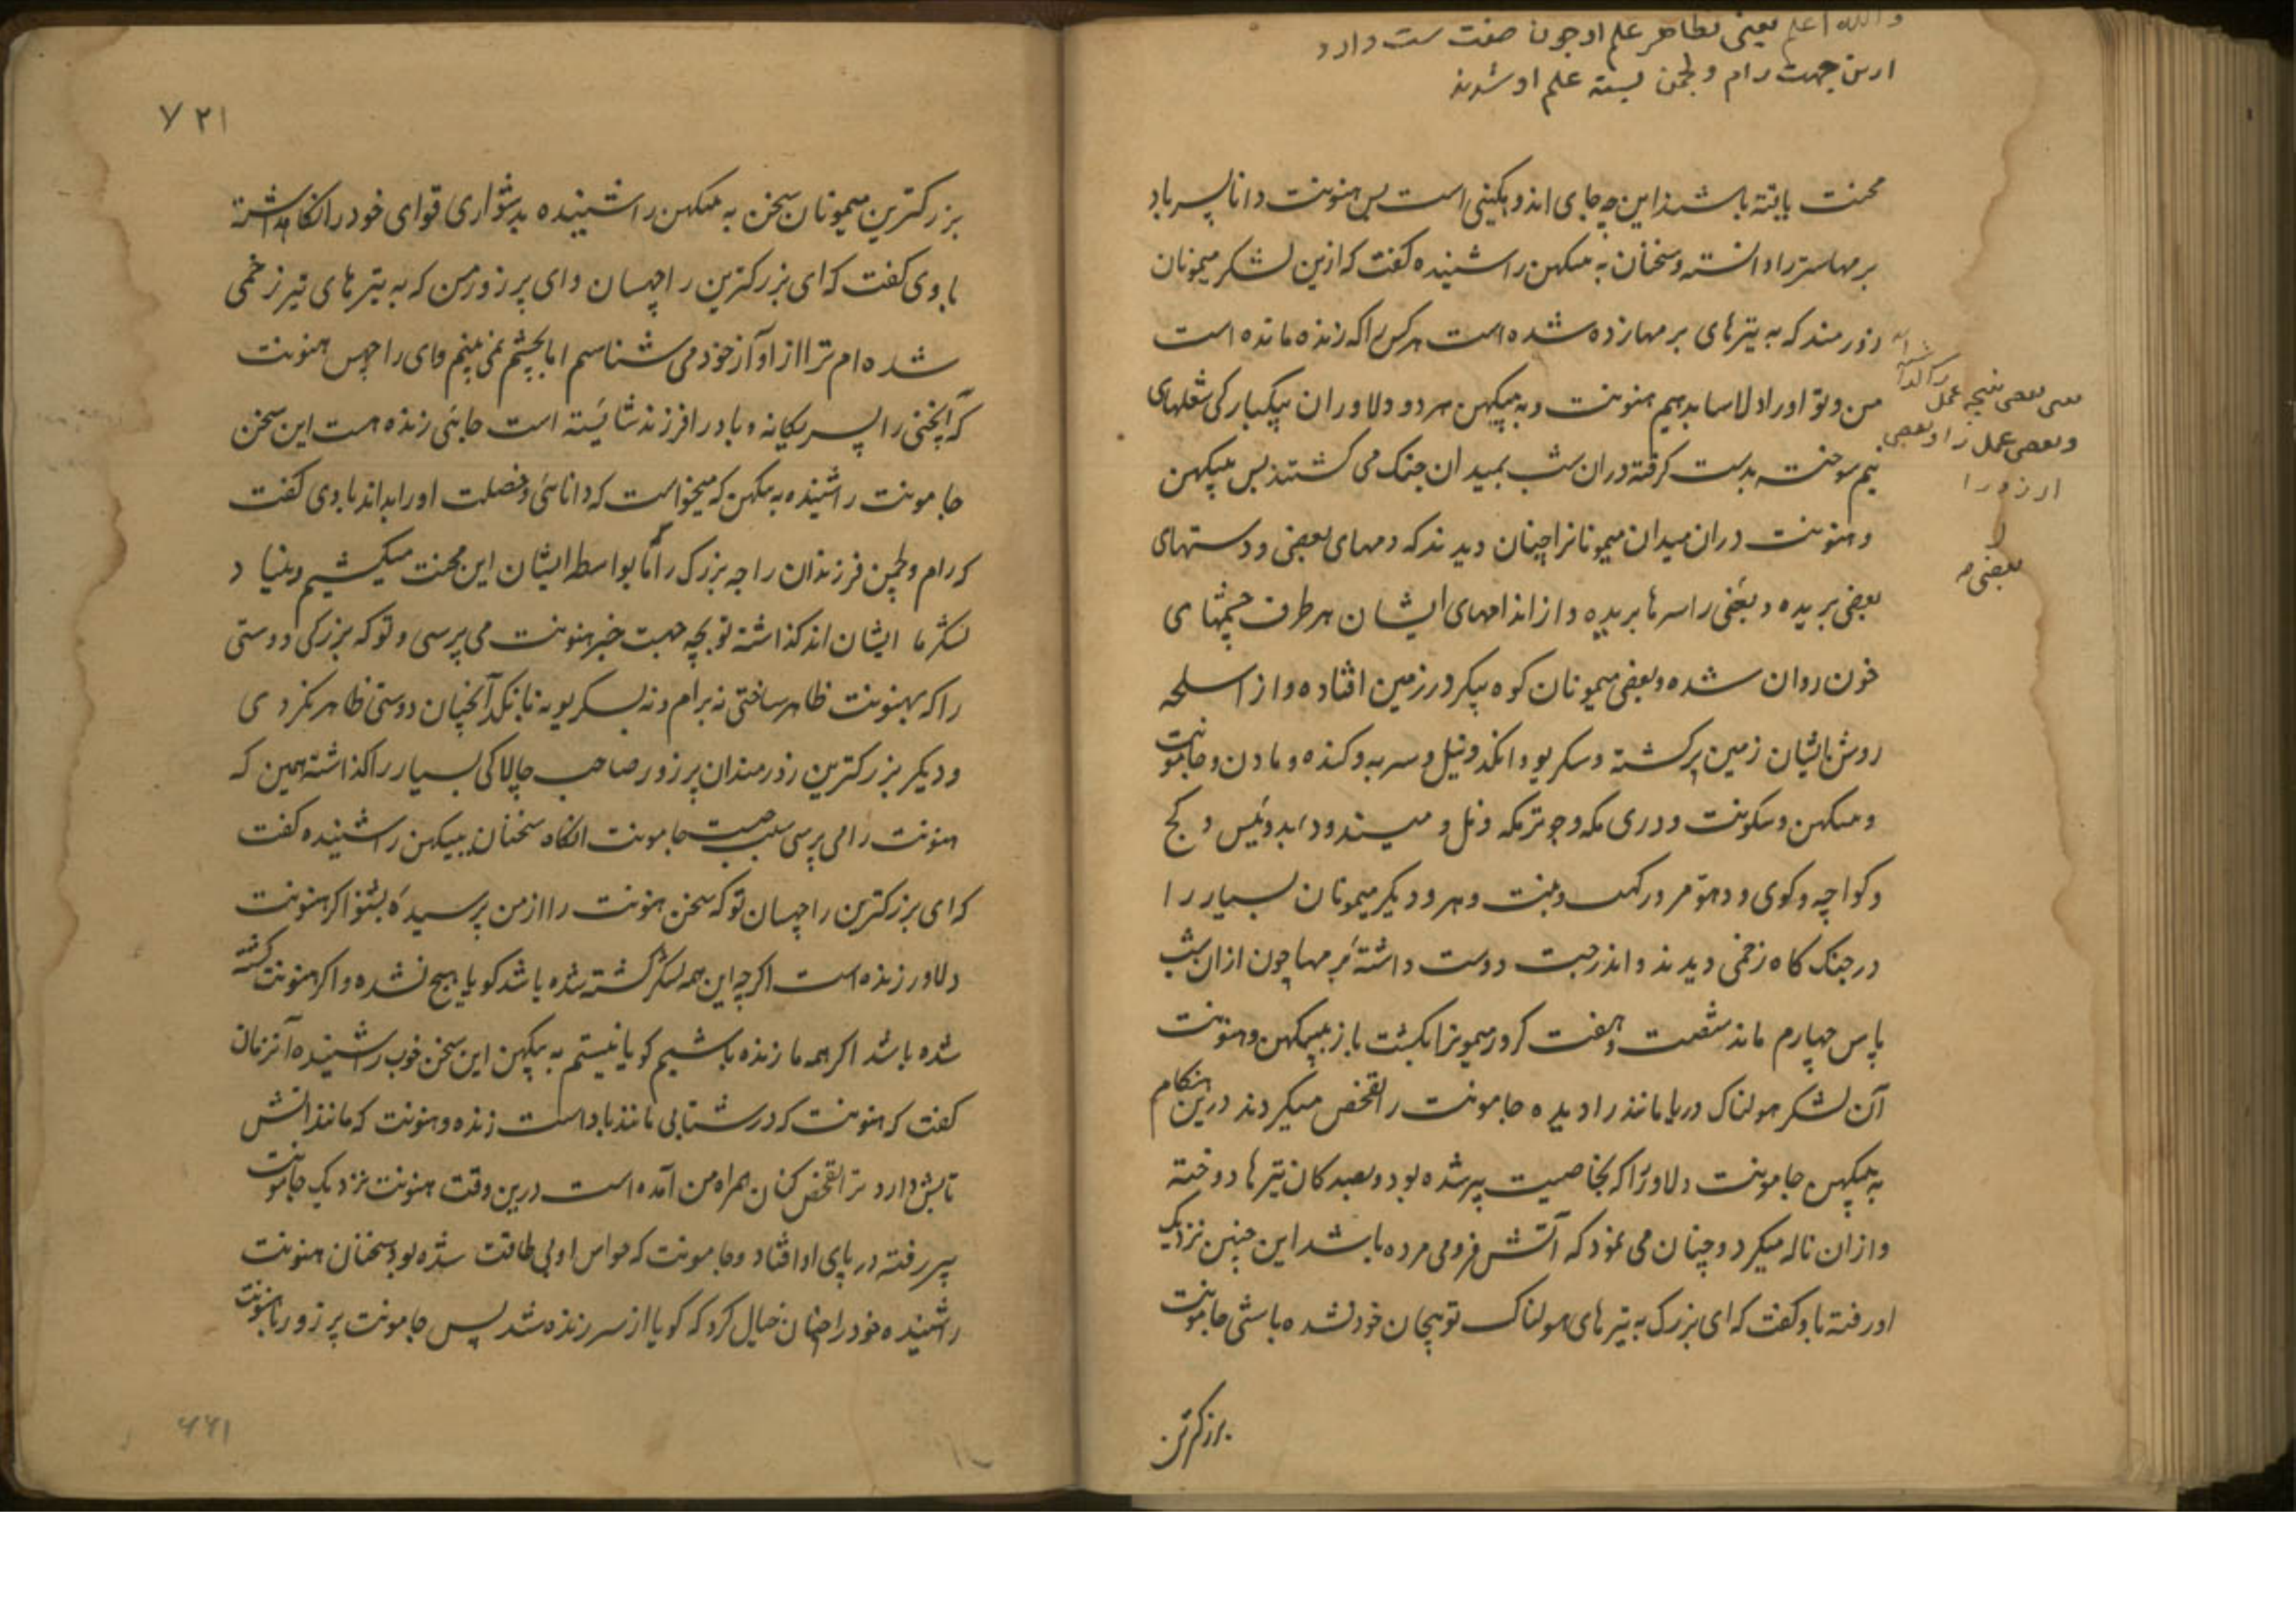 والله اعلم یعنی بظاهر علم او جون صفت ست دارد
ازین جهت رام و لچمن بسته علم او شدند
محنت یافته باشند این چه جای اندوهگینی است پس هنونت دانا پسر باد
برمهاستر را دانسته و سخنان به بهیکهن را شنیده گفت که ازین لشکر میمونان
زورمند که به تیرهای برمها زده شده است هر کس را که زنده مانده است
من و تو او را دلاسا بدهیم هنونت و به بهیکهن هر دو دلاوران بیکبارگی شعلهای
نیم سوخته بدست گرفته دران شب بمیدان جنگ می گشتند پس بهیکهن
و هنونت دران میدان میمونانرا چنان دیدند که دمهای بعضی و دستهای
بعضی بریده و بعضی را سرها بریده و از اندامهای ایشان هر طرف چشمهای
خون روان شده و بعضی میمونان کوه پیکر در زمین افتاده و از اسلحه
روشن ایشان زمین پر گشته و سکریو و انکد و نیل و سربه و کنده مادن و جامونت
و سکهن و بیکونت و دری مکه و جوتر مکه و نل و میند و دابد و پنس و کج
و کواچه و کوی و دهومر و رکهب و بنت و هر و دیگر میمونان بسیار را
در جنگ گاه زخمی دیدند و اندرجیت دوست داشته برمها چون ازان شب
پاس چهارم ماند شصت و هفت کرور میمونرا بکشت باز بهیکهن و هنونت
آن لشکر هولناک دریا مانند را دیده جامونت را تفحص میکردند درین هنگام
به بهیکهن جامونت دلاور را که بخاصیت پیر شده بود و بصدگان تیرها دوخته
و ازان ناله میکرد و چنان می نمود که آتش فرو می مرده باشد این چنین نزدیک
او رفته باو گفت که ای بزرگ به تیرهای هولناک تو بیجان خود نشده باشی جامونت
بزرگترین
بعضی نتیجه عمل
و بعضی عمل را و بعضی
ارزو را
بعضی
۷۲۱
بزرگترین میمونان سخن به بهیکهن را شنیده بدشواری قوای خود را نگاهداشته
با وی گفت که ای بزرگترین راچهسان و ای پر زور من که به تیرهای تیز زخمی
شده ام ترا از آواز خود می شناسم اما بچشم نمی بینم و ای راچهس هنونت
که انجنی را پسر یگانه و باد را فرزند شائسته است جائی زنده هست این سخن
جامونت را شنیده به بهیکهن که میخواست که دانائی و خصلت او را بداند با وی گفت
که رام و لچمن فرزندان راجه بزرگ را که ما بواسطه ایشان این محنت میکشیم و بنیاد
لشکر ما ایشان اند گذاشته تو بچه جهت خبر هنونت می پرسی و تو که بزرگی دوستی
را که بهنونت ظاهر ساختی نه برام و نه بسکریو نه بانکد آنچنان دوستی ظاهر نکردی
و دیگر بزرگترین زورمندان پر زور صاحب چالاکی بسیار را گذاشته همین که
هنونت را می پرسی سبب چیست جامونت انگاه سخنان بهیکهن را شنیده گفت
که ای بزرگترین راچهسان تو که سخن هنونت را از من پرسیده بشنو اگر هنونت
دلاور زنده است اگرچه این همه لشکر کشته شده باشد گویا هیچ نشده و اگر هنونت کشته
شده باشد اگر همه ما زنده باشیم گویا نیستم به بهیکهن این سخن خوب را شنیده آنزمان
گفت که هنونت که در شتابی مانند باد است زنده و هنونت که مانند آتش
تابش دارد ترا تفحص کنان همراه من آمده است درین وقت هنونت نزدیک جامونت
پیر رفته در پای او افتاد و جامونت که حواس او بی طاقت شده بود سخنان هنونت
را شنیده خود را چنان خیال کرد که گویا از سر زنده شد پس جامونت پر زور با هنونت
۴۴۱